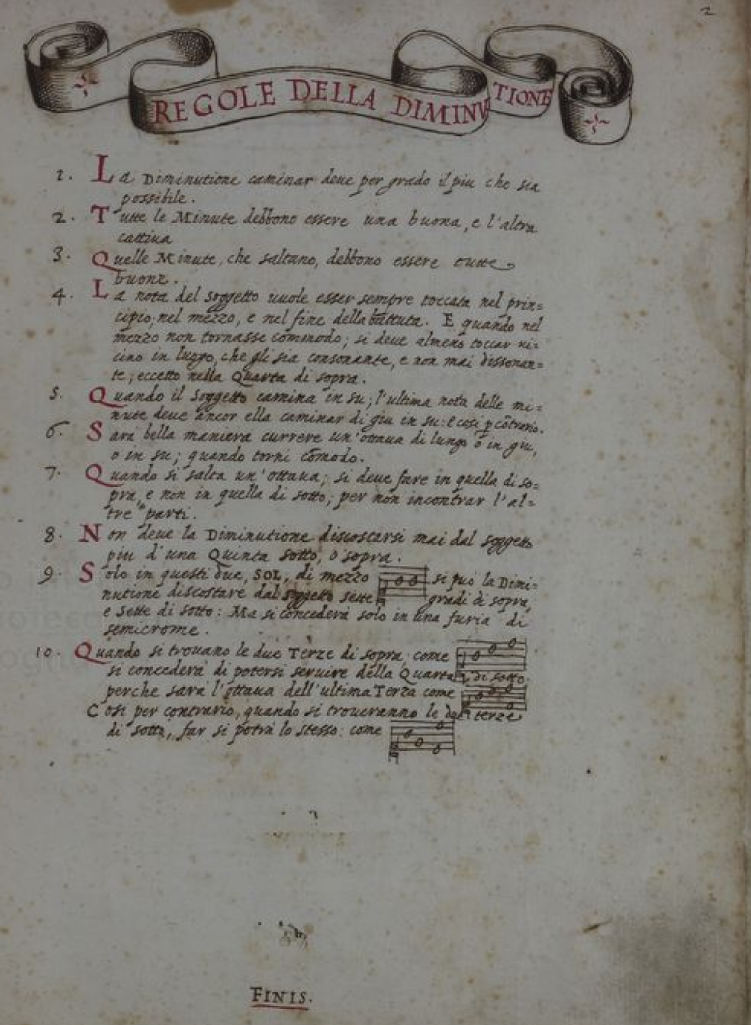 2
REGOLE DELLA DIMINUTIONE
1. La Diminutione caminar deue per grado il piu che sia
possibile.
2. Tutte le Minute debbono essere una buona, e l'altra
cattiua
3. Quelle Minute, che saltano, debbono essere tutte
buone.
4. La nota del soggetto uuole esser sempre toccata nel prin=
cipio, nel mezzo, e nel fine della battuta. E quando nel
mezzo non tornasse commodo; si deue almeno toccar ui=
cino in luogo, che gli sia consonante, e non mai dissonan=
te; eccetto nella Quarta di sopra.
5. Quando il Soggetto camina in su; l'ultima nota delle mi=
nute deue ancor ella caminar di giu in su: e cosi p cōtrario.
6. Sarà bella maniera currere un'ottaua di lungo ò in giu,
o in su; quando torni cōmodo.
7. Quando si salta un'ottaua; si deue fare in quella di so=
pra, e non in quella di sotto; per non incontrar l'al=
tre parti.
8. Non deue la Diminutione discostarsi mai dal soggetto
piu d'una Quinta sotto, ò sopra.
9. Solo in questi due, SOL, di mezzo si può la Dimi=
nutione discostare dal soggetto sette gradi di sopra,
e sette di sotto: Ma si concederà solo in una furia di
semicrome.
10. Quando si trouano le due Terze di sopra come
si concederà di potersi seruire della Quarta di sotto,
perche sarà l'ottaua dell'ultima Terza come
Cosi per contrario, quando si troueranno le due terze
di sotto, far si potrà lo stesso: come
FINIS.